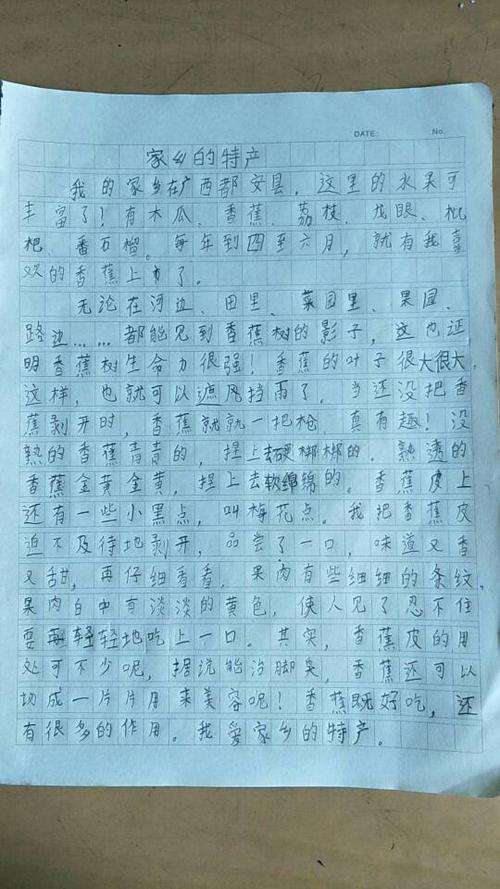 DATE: No.
家乡的特产
我的家乡在广西都安县，这里的水果可
丰富了！有木瓜、香蕉、荔枝、龙眼、枇
杷、番石榴。每年到四至六月，就有我喜
欢的香蕉上市了。
无论在河边、田里、菜园里、果园、
路边……都能见到香蕉树的影子，这也证
明香蕉树生命力很强！香蕉的叶子很大很大，
这样，也就可以遮风挡雨了。当还没把香
蕉剥开时，香蕉就就一把枪，真有趣！没
熟的香蕉青青的，捏上去硬梆梆的。熟透的
香蕉金黄金黄，捏上去软绵绵的。香蕉皮上
还有一些小黑点，叫梅花点。我把香蕉皮
迫不及待地剥开，品尝了一口，味道又香
又甜，再仔细看看，果肉有些细细的条纹，
果肉白中有淡淡的黄色，使人见了忍不住
要再轻轻地吃上一口。其实，香蕉皮的用
处可不少呢，据说能治脚臭，香蕉还可以
切成一片片用来美容呢！香蕉既好吃，还
有很多的作用。我爱家乡的特产。